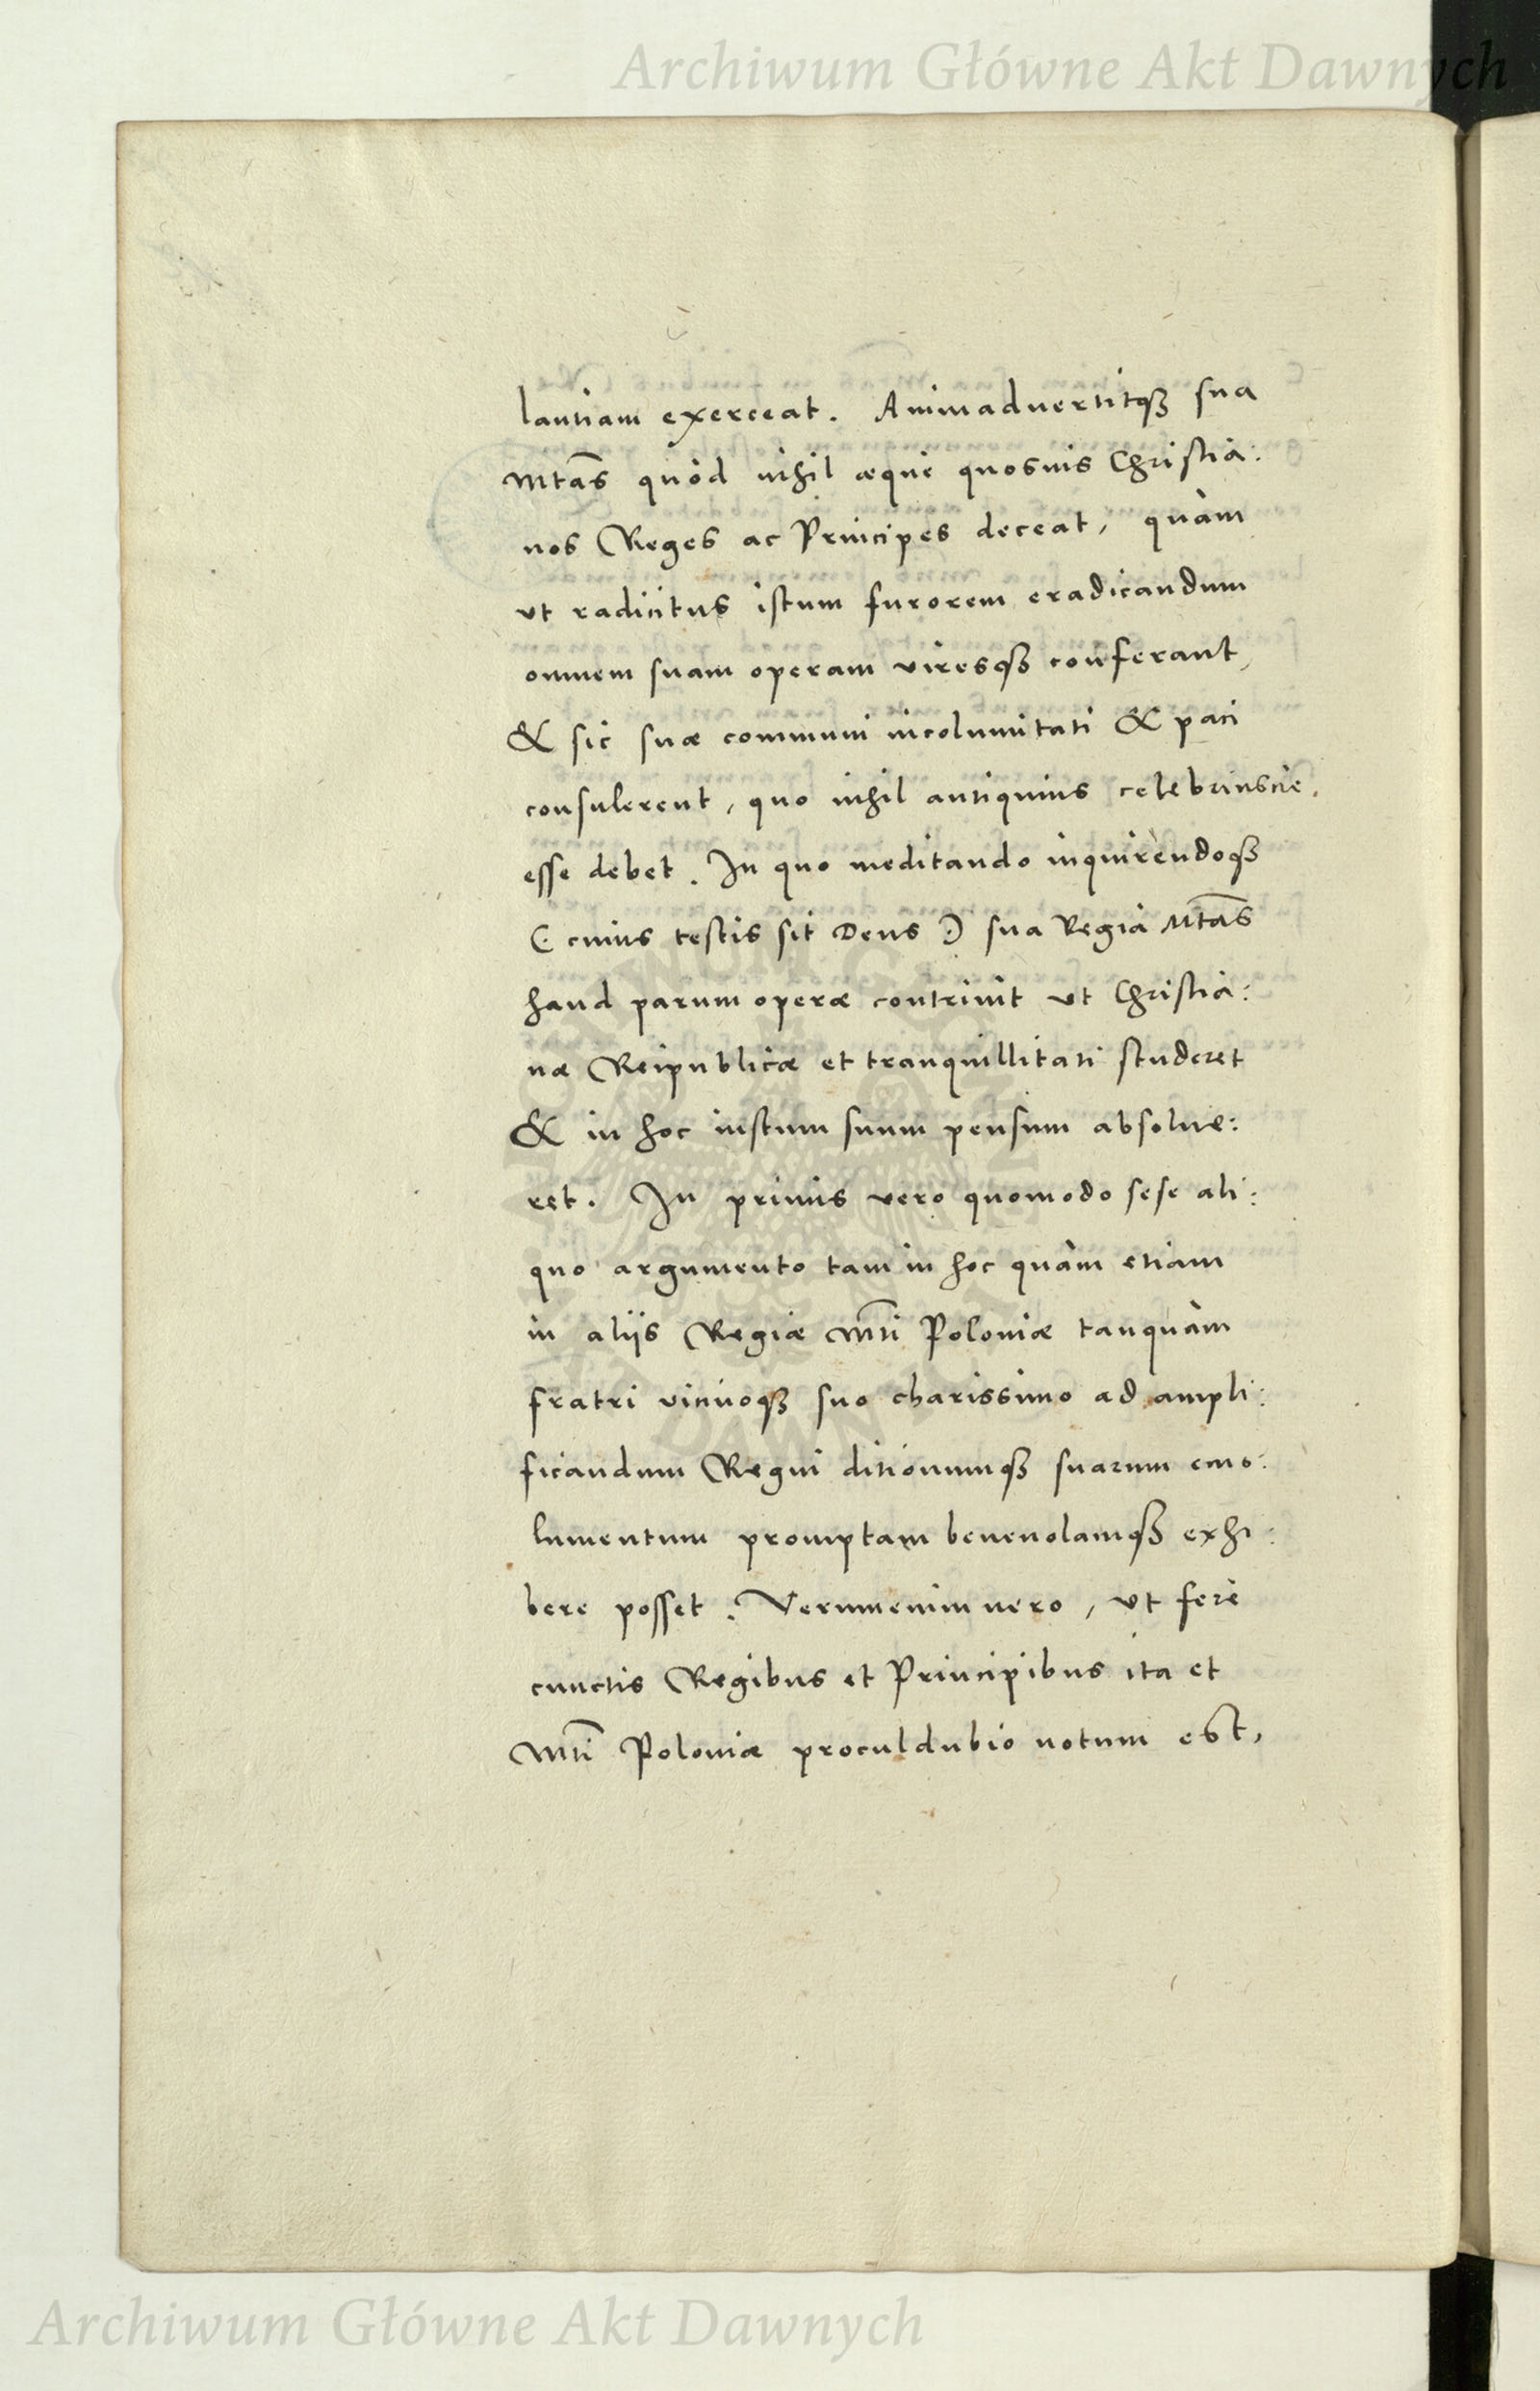 Archiwum Główne Akt Dawnych
lantiam exerceat. Animaduertitqȝ sua
Mtas quòd nihil æque quosuis Christia:
nos Reges ac Principes deceat, quàm
vt radicitus istum furorem eradicandum
omnem suam operam viresqȝ conferant,
& sic suæ communi incolumitati & paci
consulerent, quo nihil antiquius celebriusue
esse debet. In quo meditando inquirendoqȝ
(: cuius testis sit Deus :) sua Regia Mtas
haud parum operæ contriuit vt Christia:
næ Reipublicæ et tranquillitati studeret
& in hoc iustum suum pensum absolue:
ret. In primis vero quomodo sese ali:
quo argumento tam in hoc quàm etiam
in aliis Regiæ Mti Poloniæ tanquàm
fratri vicinoqȝ suo charissimo ad ampli:
ficandum Regni ditionumqȝ suarum emo:
lumentum promptam beneuolamqȝ exhi:
bere posset. Verumenimuero, vt ferè
cunctis Regibus et Principibus ita et
Mti Poloniæ proculdubio notum est,
Archiwum Główne Akt Dawnych